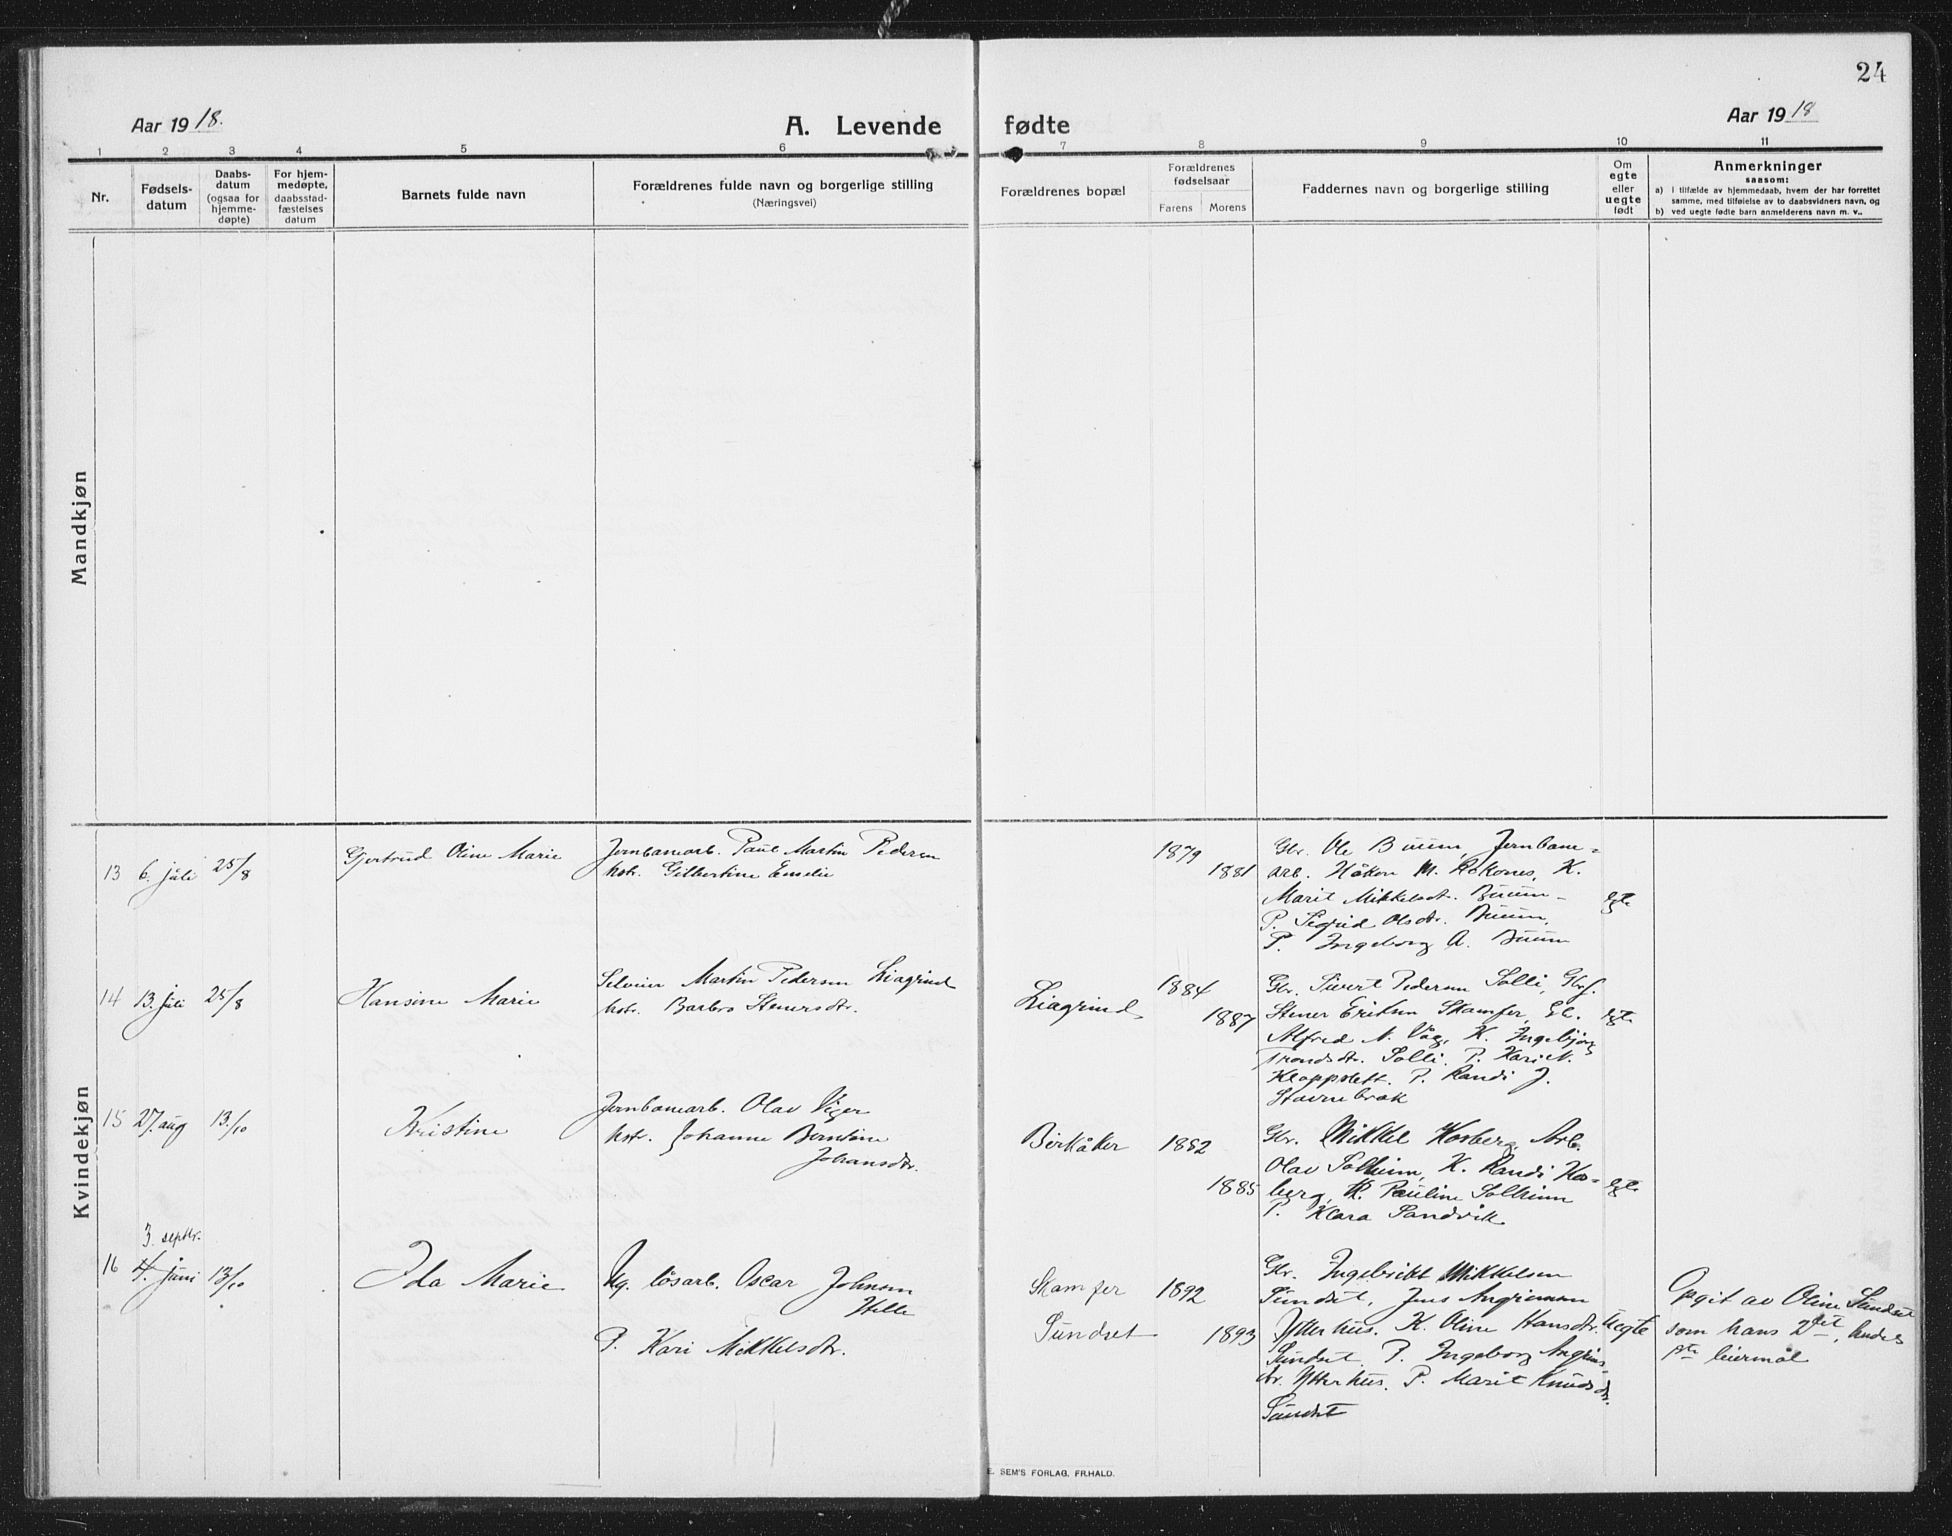 24
Aar 1918.
A. Levende fødte
Aar 1918
1 2 3 4 5 6 7 8 9 10 11
Nr.
Fødsels-
datum
Daabs-
datum
(ogsaa for
hjemme-
døpte)
For hjem-
medøpte,
daabsstad-
fæstelses
datum
Barnets fulde navn
Forældrenes fulde navn og borgerlige stilling
(Næringsvei)
Forældrenes bopæl
Forældrenes
fødselsaar
Farens Morens
Faddernes navn og borgerlige stilling
Om
egte
eller
uegte
født
Anmerkninger
saasom:
a) i tilfælde av hjemmedaab, hvem der har forrettet
samme, med tilføielse av to daabsvidners navn, og
b) ved uegte fødte barn anmelderens navn m. v..
Mandkjøn
Kvindekjøn
13 6. juli 25/8
Gjertrud Oline Marie
Jernbanearb. Paul Martin Pedersen
hstr. Gilbertine Emelie
1879
1881
Gbr. Ole Buum, Jernbane=
arb. Håkon M. Rokones, K.
Marit Mikkelsdt. Buum
P. Sigrid Olsdtr. Buum,
P. Ingeborg A. Buum
Egte
14 13. juli 25/8
Hansine Marie
Martin Pedersen Liagrind
hstr. Barbro Stenersdtr.
Liagrind
1884
1887
Gbr. Sivert Pedersen Solli, Gbr.
Stener Eriksen Skamfer,
Alfred N. Våg, K. Ingebjørg
Trondsdtr. Solli. P. Kari N.
Kloppslett. P. Randi J.
Stavnebrak
Egte
15 27. aug 13/10
Kristine
Jernbanearb. Olav Viger
hstr. Johanne Berntine
Johansdtr.
Birkåker
1882
1885
Gbr. Mikkel Hosberg, Arb.
Olav Solheim, K. Randi Hos=
berg, K. Pauline Solheim
P. Klara Sandvik
Egte
3. septbr.
16 4. juni 13/10
Ida Marie
Ug. løsarb. Oscar Johnsen
Helle
P. Kari Mikkelsdtr.
Skamfer
Sundset
1892
1893
Gbr. Ingebrikt Mikkelsen
Sundset, Jens Angrimsen
Ytterhus. K. Oline Hansdtr.
Sundset. P. Ingeborg Angrims-
dtr. Ytterhus. P. Marit Knudsdtr.
Sundset
Uegte
Opgit av Oline Sundset
som hans 2det, hendes
1ste leiermål
E. SEM'S FORLAG, FR.HALD.